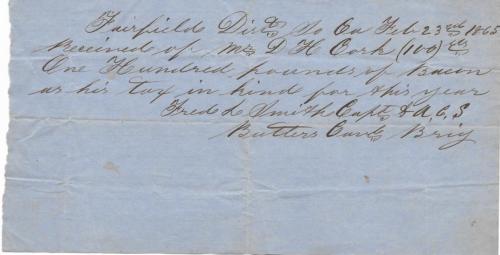 Fairfield Dist So Ca Feb 23rd 1865
Received of Mr D H Cork (100) lbs
One Hundred pounds of Bacon
as his tax in kind for this year
Fred L Smith Capt & A, C, S
Butlers Cav Brig